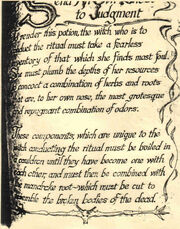 Send
to Judgment
render this potion, the witch who is to
the ritual must take a fearless
of that which she finds most foul.
She must plumb the depths of her resources
concoct a combination of herbs and roots
that are, to her own nose, the most grotesque
and repugnant combination of odors.
These components, which are unique to the
witch conducting the ritual must be boiled in
children until they have become one with
each other, and must then be combined with
mandrake root—which must be cut to
resemble the broken bodies of the dead.